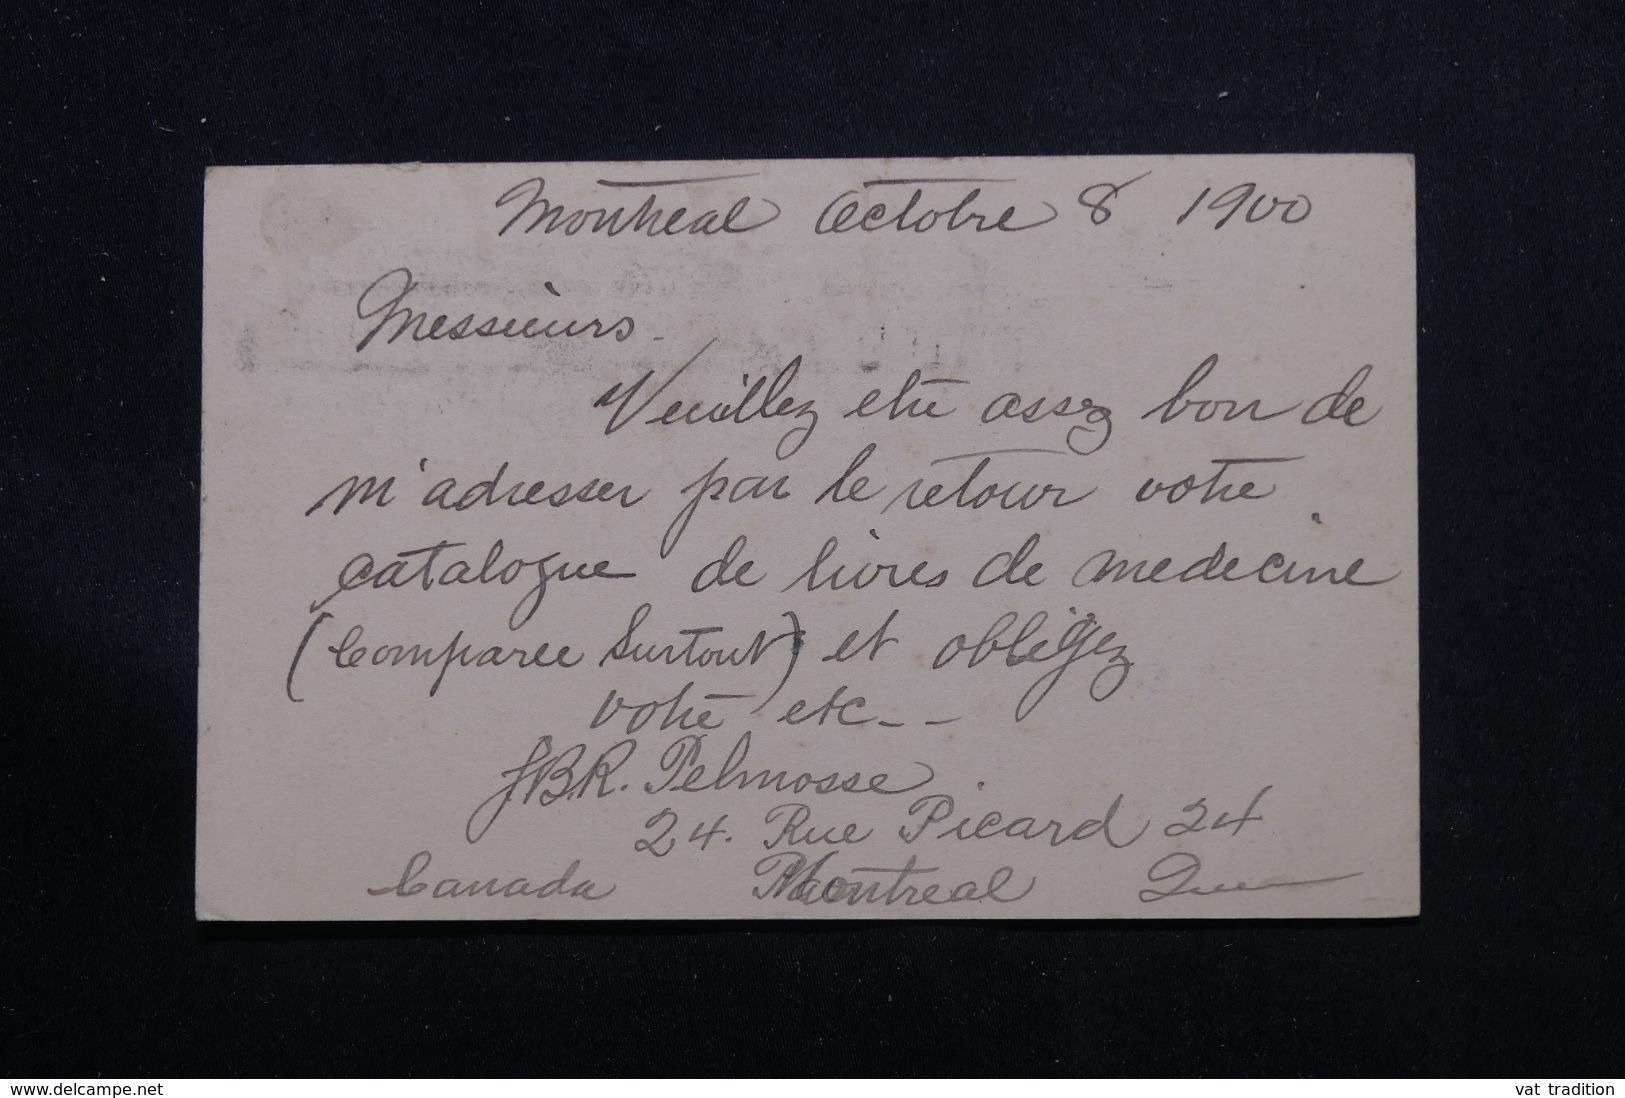 Montreal Octobre 8 1900
Messieurs.
Veuillez etre assez bon de
m'adresser par le retour votre
catalogue de livres de medecine
(Comparee Surtout) et obligez
votre etc--
JBR. Pelmosse
24. Rue Picard 24
Canada Montreal Que
www.delcampe.net
vat tradition